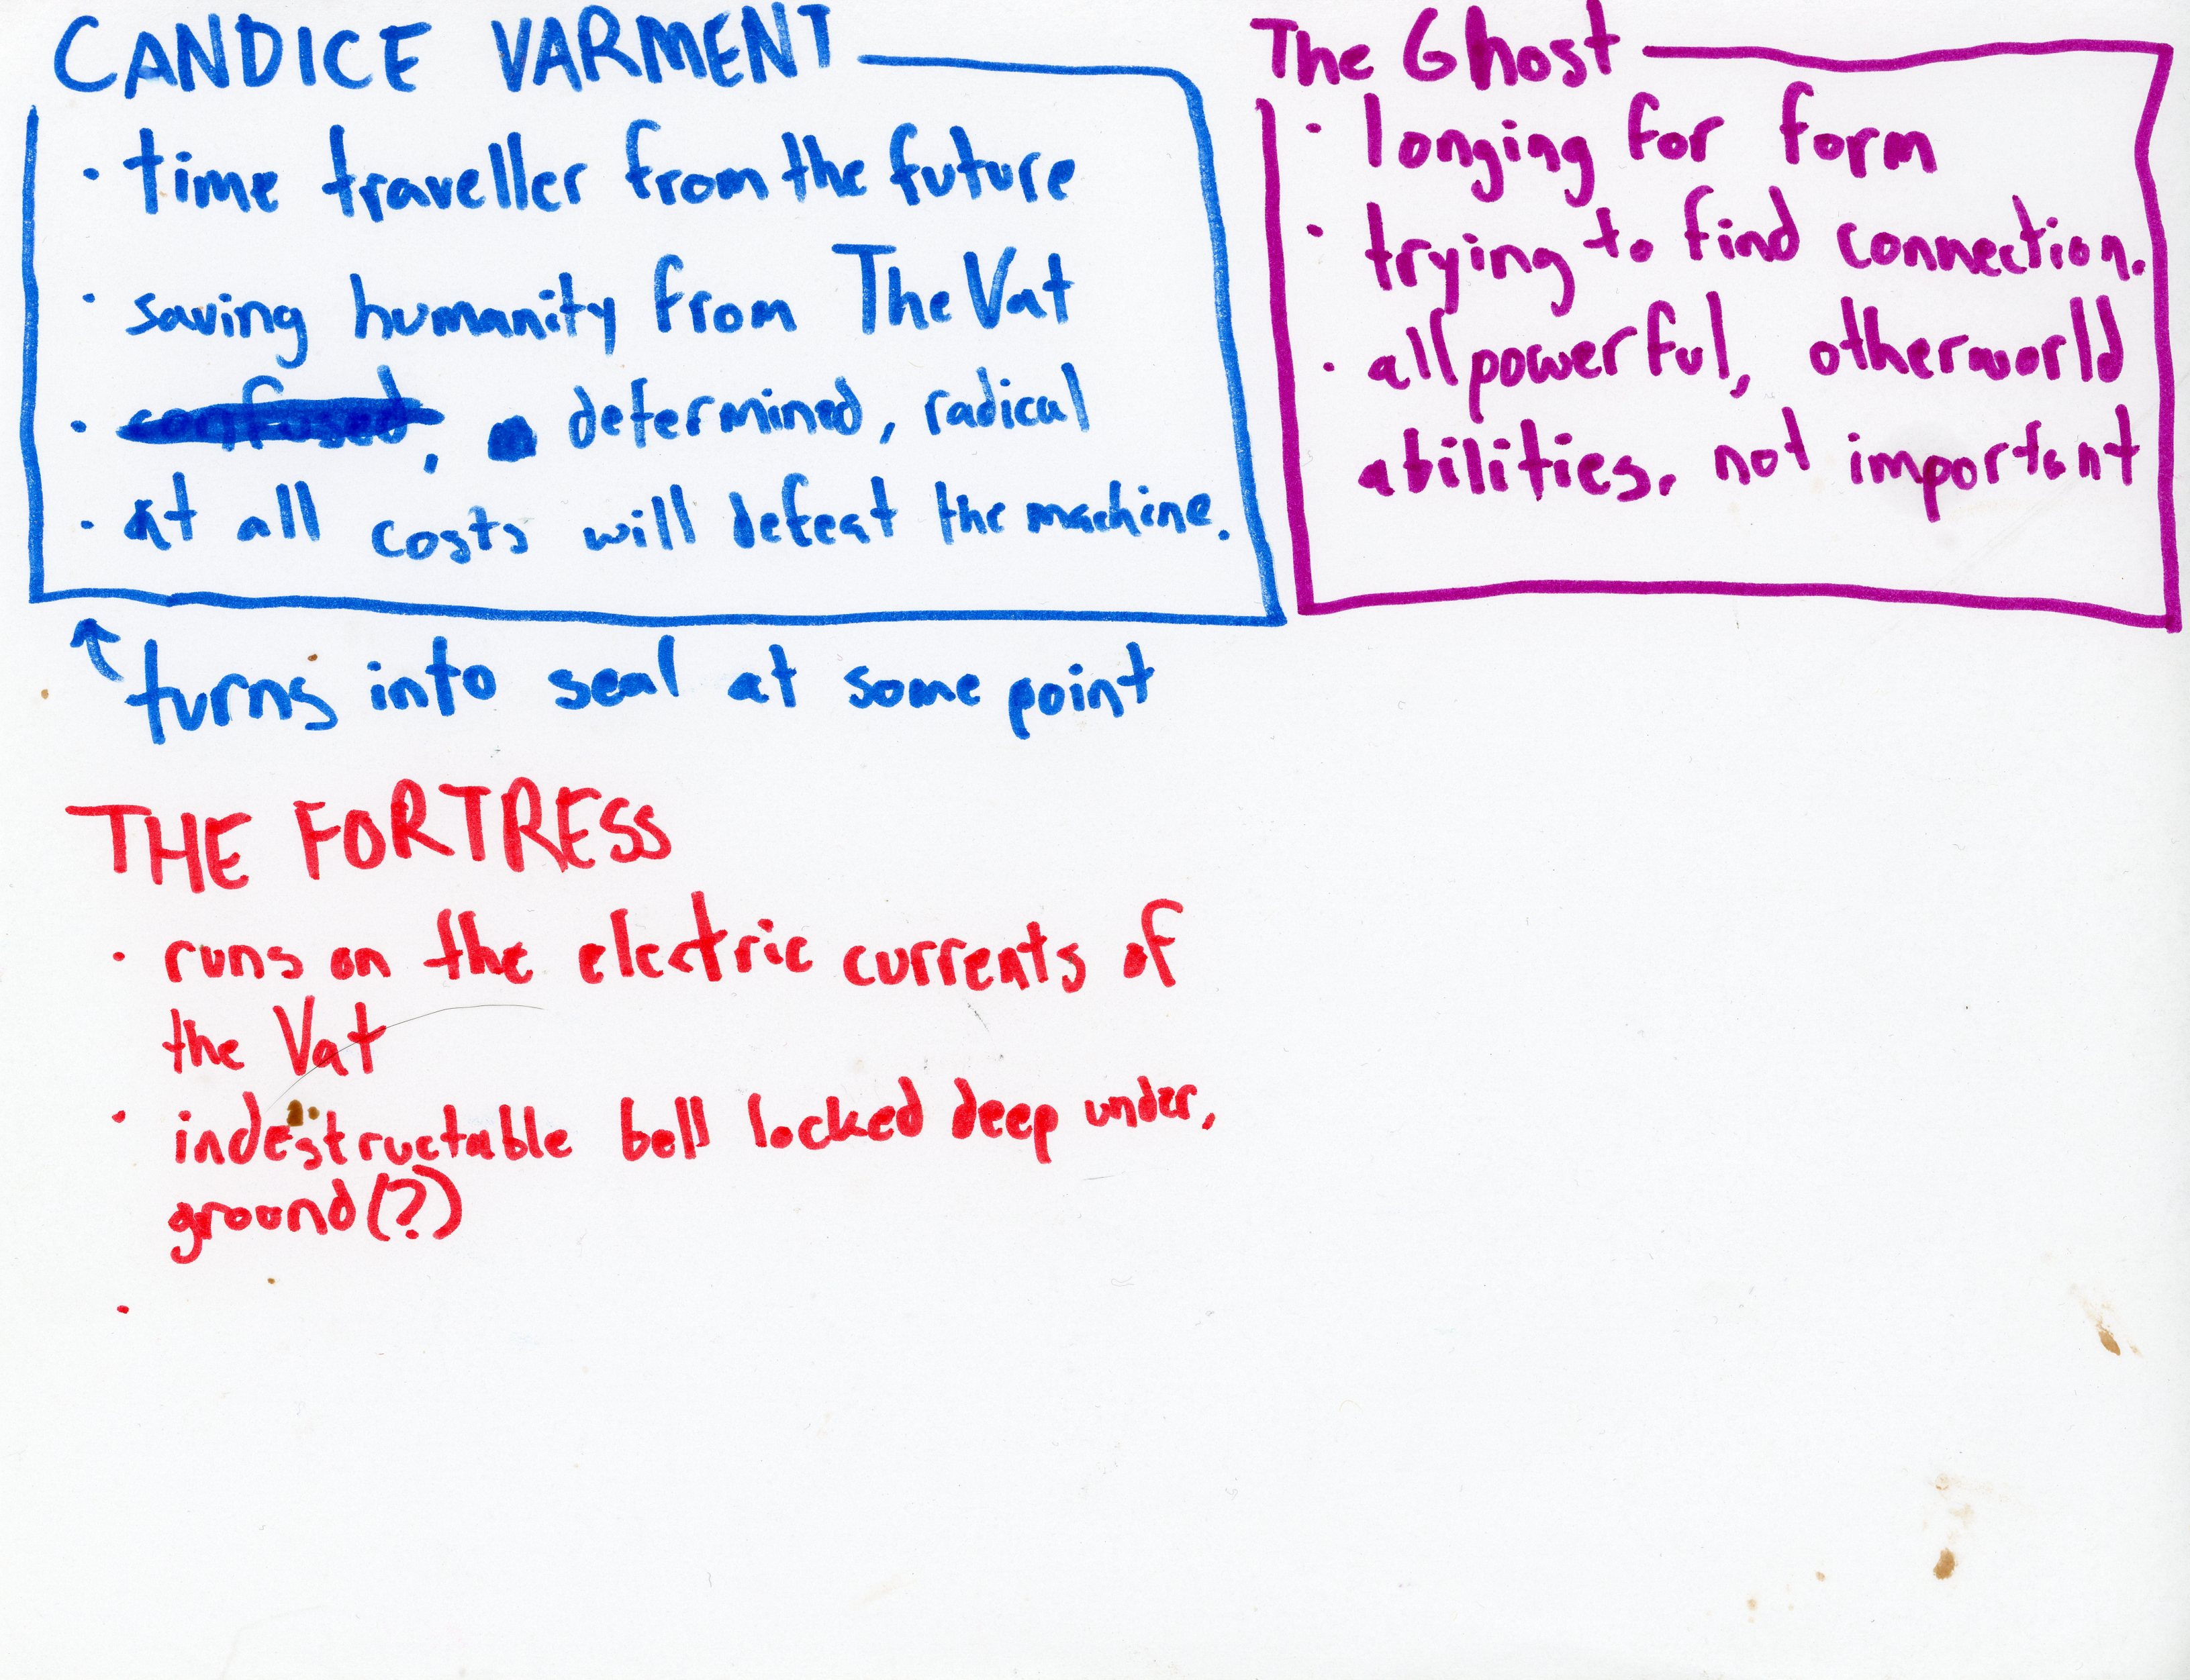 CANDICE VARMENT
· time traveller from the future
· saving humanity from The Vat
· confused, determined, radical
· at all costs will defeat the machine.
↑ turns into seal at some point
The Ghost
· longing for form
· trying to find connection.
· all powerful, otherworld
abilities. not important
THE FORTRESS
· runs on the electric currents of
the Vat
· indestructable bell locked deep under,
ground(?)
·